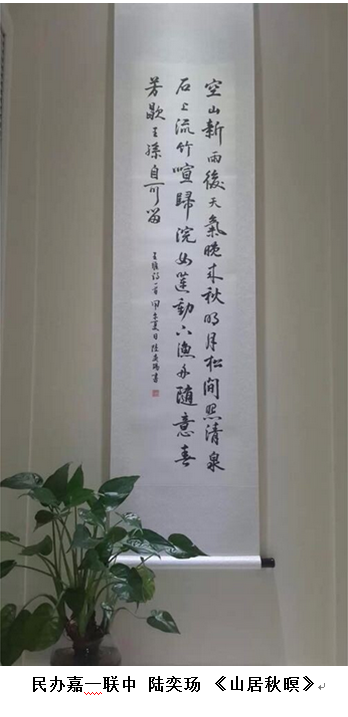 空山新雨後天氣晚来秋明月松間照清泉
石上流竹喧歸浣女蓮動下漁舟隨意春
芳歇王孫自可留
王維詩一首 夏日陸奕瑒書
民办嘉一联中 陆奕玚 《山居秋暝》